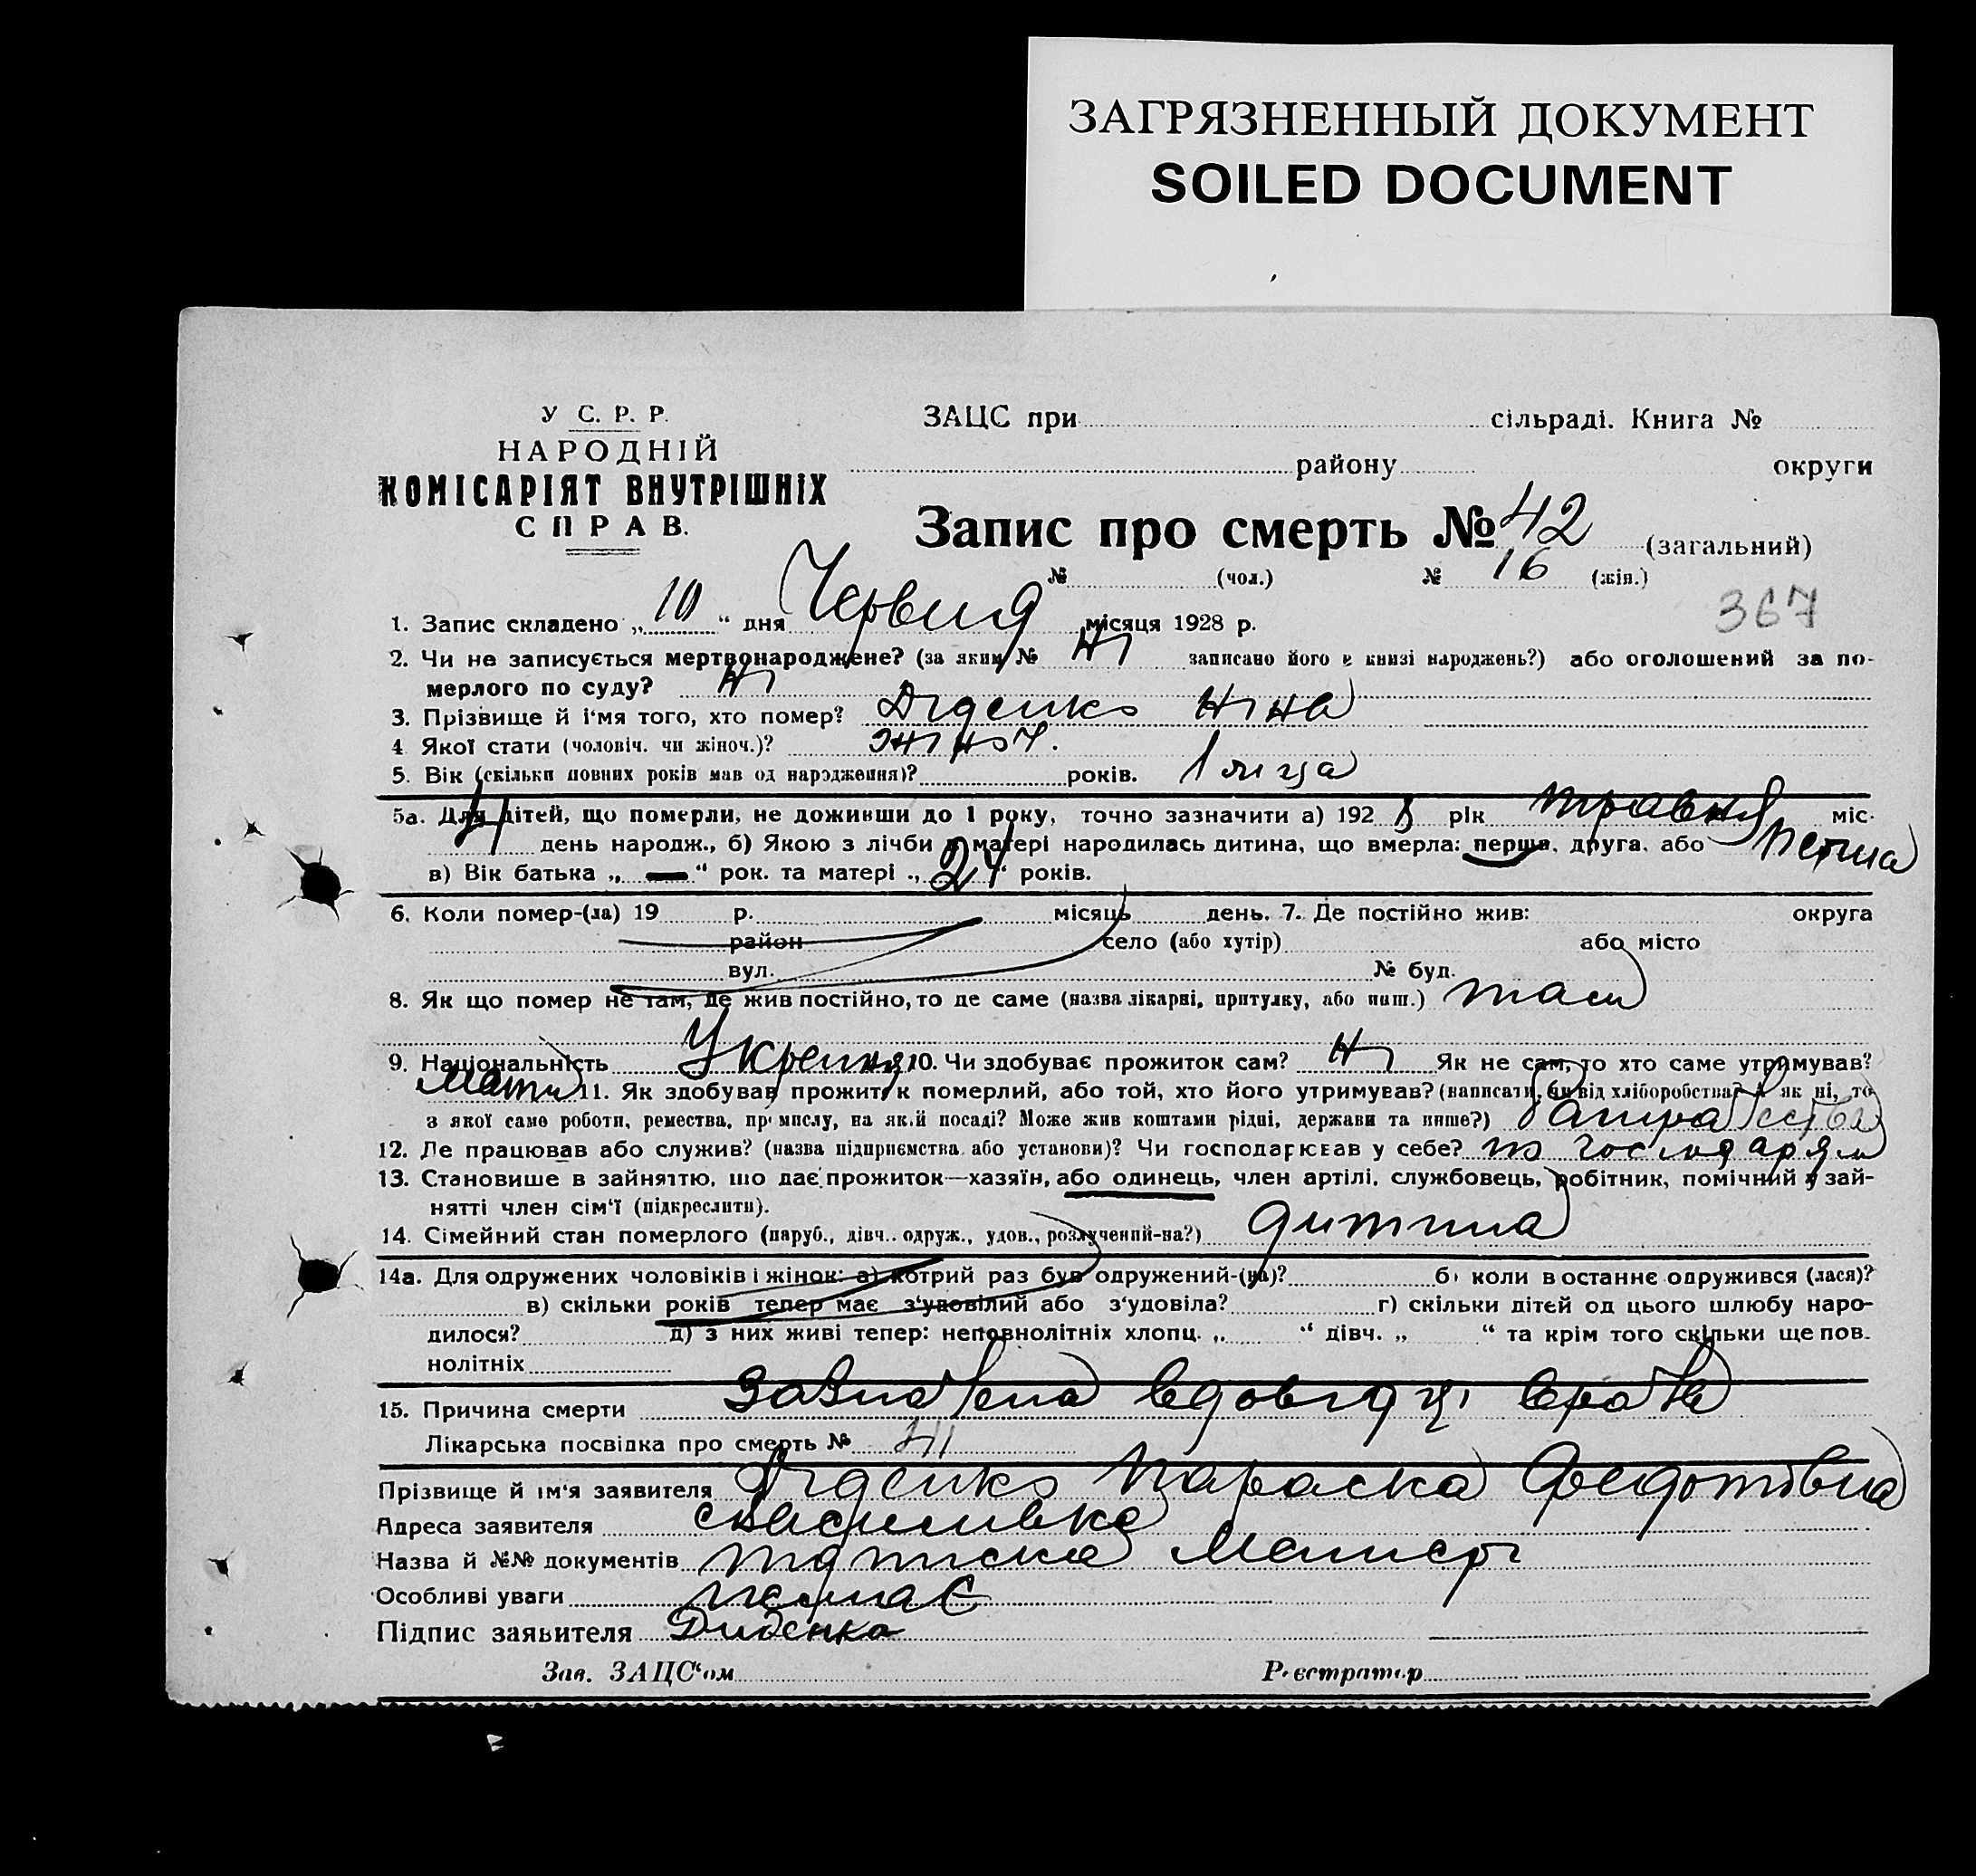 ЗАГРЯЗНЕННЫЙ ДОКУМЕНТ
SOILED DOCUMENT
У С. Р. Р.
НАРОДНІЙ
КОМІСАРІЯТ ВНУТРІШНІХ
СПРАВ.
ЗАЦС при сільраді. Книга №
району округи
Запис про смерть № 42 (загальний)
№ (чол.) № 16 (жін.)
367
1. Запис складено „ 10 “ дня Червня місяця 1928 р.
2. Чи не записується мертвонароджене? (за яким № Ні записано його в книзі народжень?) або оголошений за по-
мерлого по суду? Ні
3. Прізвище й і'мя того, хто помер? Діденко Ніна
4 Якої стати (чоловіч. чи жіноч.)? жіноч.
5. Вік (скільки повних років мав од народження)? років. 1 м-ця
5а. Для дітей, що померли, не доживши до 1 року, точно зазначити а) 192 8 рік травня міс.
4 день народж., б) Якою з лічби у матері народилась дитина, що вмерла: перша, друга, або перша
в) Вік батька „ — “ рок. та матері „ 24 “ років.
6. Коли помер-(ла) 19 р. місяць день. 7. Де постійно жив: округа
район село (або хутір) або місто
вул. № буд.
8. Як що помер не там, де жив постійно, то де саме (назва лікарні, притулку, або инш.) там
9. Національність Україн 10. Чи здобуває прожиток сам? Ні Як не сам, то хто саме утримував?
Мати 11. Як здобував прожиток померлий, або той, хто його утримував? (написати, чи від хліборобства? А як ні, то
з якої саме роботи, ремества, промислу, на якій посаді? Може жив коштами рідні, держави та инше?)
12. Де працював або служив? (назва підприємства або установи)? Чи господарював у себе? по господарям
13. Становише в зайняттю, що дає прожиток—хазяїн, або одинець, член артілі, службовець, робітник, помічний у зай-
нятті член сім'ї (підкреслити).
14. Сімейний стан померлого (паруб., дівч.. одруж., удов., розлучений-на?) дитина
14а. Для одружених чоловіків і жінок: а) котрий раз був одружений-(на)? б) коли в останнє одружився (лася)?
в) скільки років тепер має з'удовілий або з'удовіла? г) скільки дітей од цього шлюбу наро-
дилося? д) з них живі тепер: неповнолітніх хлопц. „ “ дівч. „ “ та крім того скільки ще пов.
нолітніх
15. Причина смерти
Лікарська посвідка про смерть №
Прізвище й ім'я заявителя Діденко Параска Федотівна
Адреса заявителя с Василівка
Назва й №№ документів підписка Матері
Особливі уваги немає
Підпис заявителя Диденко
Зав. ЗАЦС'ом Реєстратор